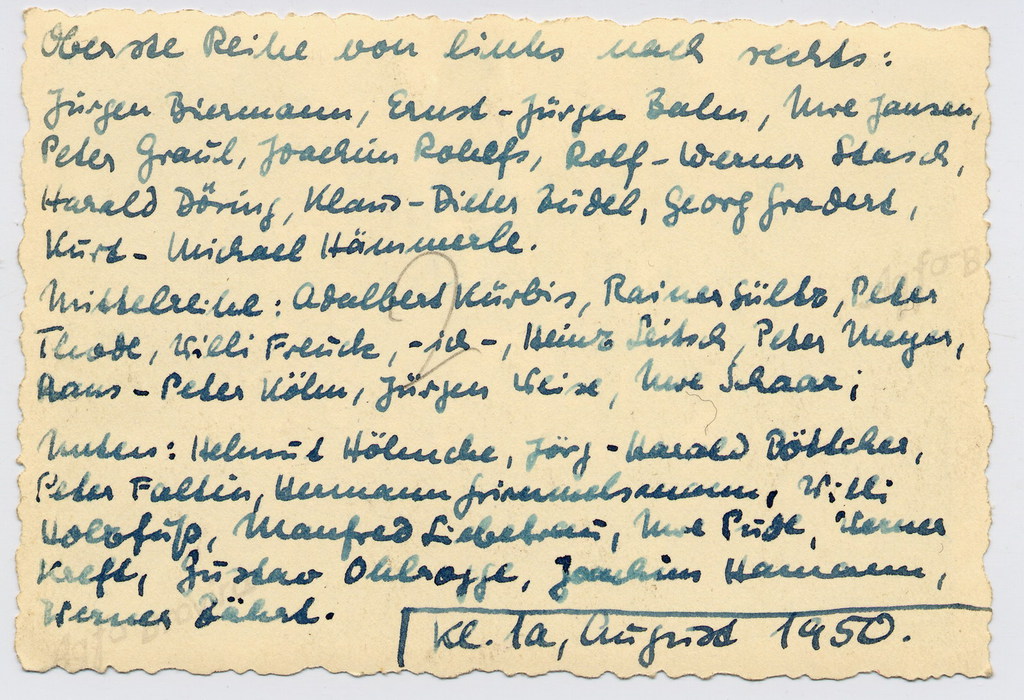 Oberste Reihe von links nach rechts:
Jürgen Biermann, Ernst-Jürgen Bahn, Uwe Jansen,
Peter Graul, Joachim Rohlfs, Rolf-Werner Stasch,
Harald Döring, Klaus-Dieter Büdel, Georg Gradert,
Kurt-Michael Hämmerle.
Mittelreihe: Adalbert Kürbis, Rainer Sültz, Peter
Thode, Willi Frenck, -ich-, Heinz Leitsch, Peter Meyer,
Hans-Peter Köhn, Jürgen Weise, Uwe Schaar;
Unten: Helmut Höhncke, Jörg-Harald Böttcher,
Peter Faltin, Hermann Grimmelsmann, Willi
Holzfuß, Manfred Liebetrau, Uwe Pudl, Werner
Kreft, Gustav Ohlrogge, Joachim Hamann,
Werner Bährt.
Kl. 1a, August 1950.
2